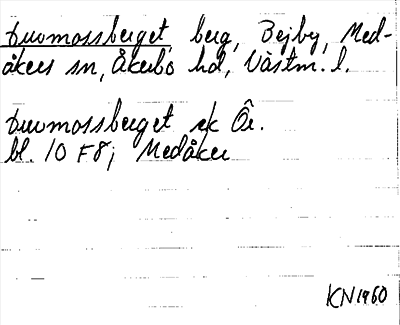 Duvmossberget, berg, Bejby, Med-
åkers sn, Åkerbo hd, Västm. l.
Duvmossberget ek
bl. 10 F8; Medåker
KN 1960